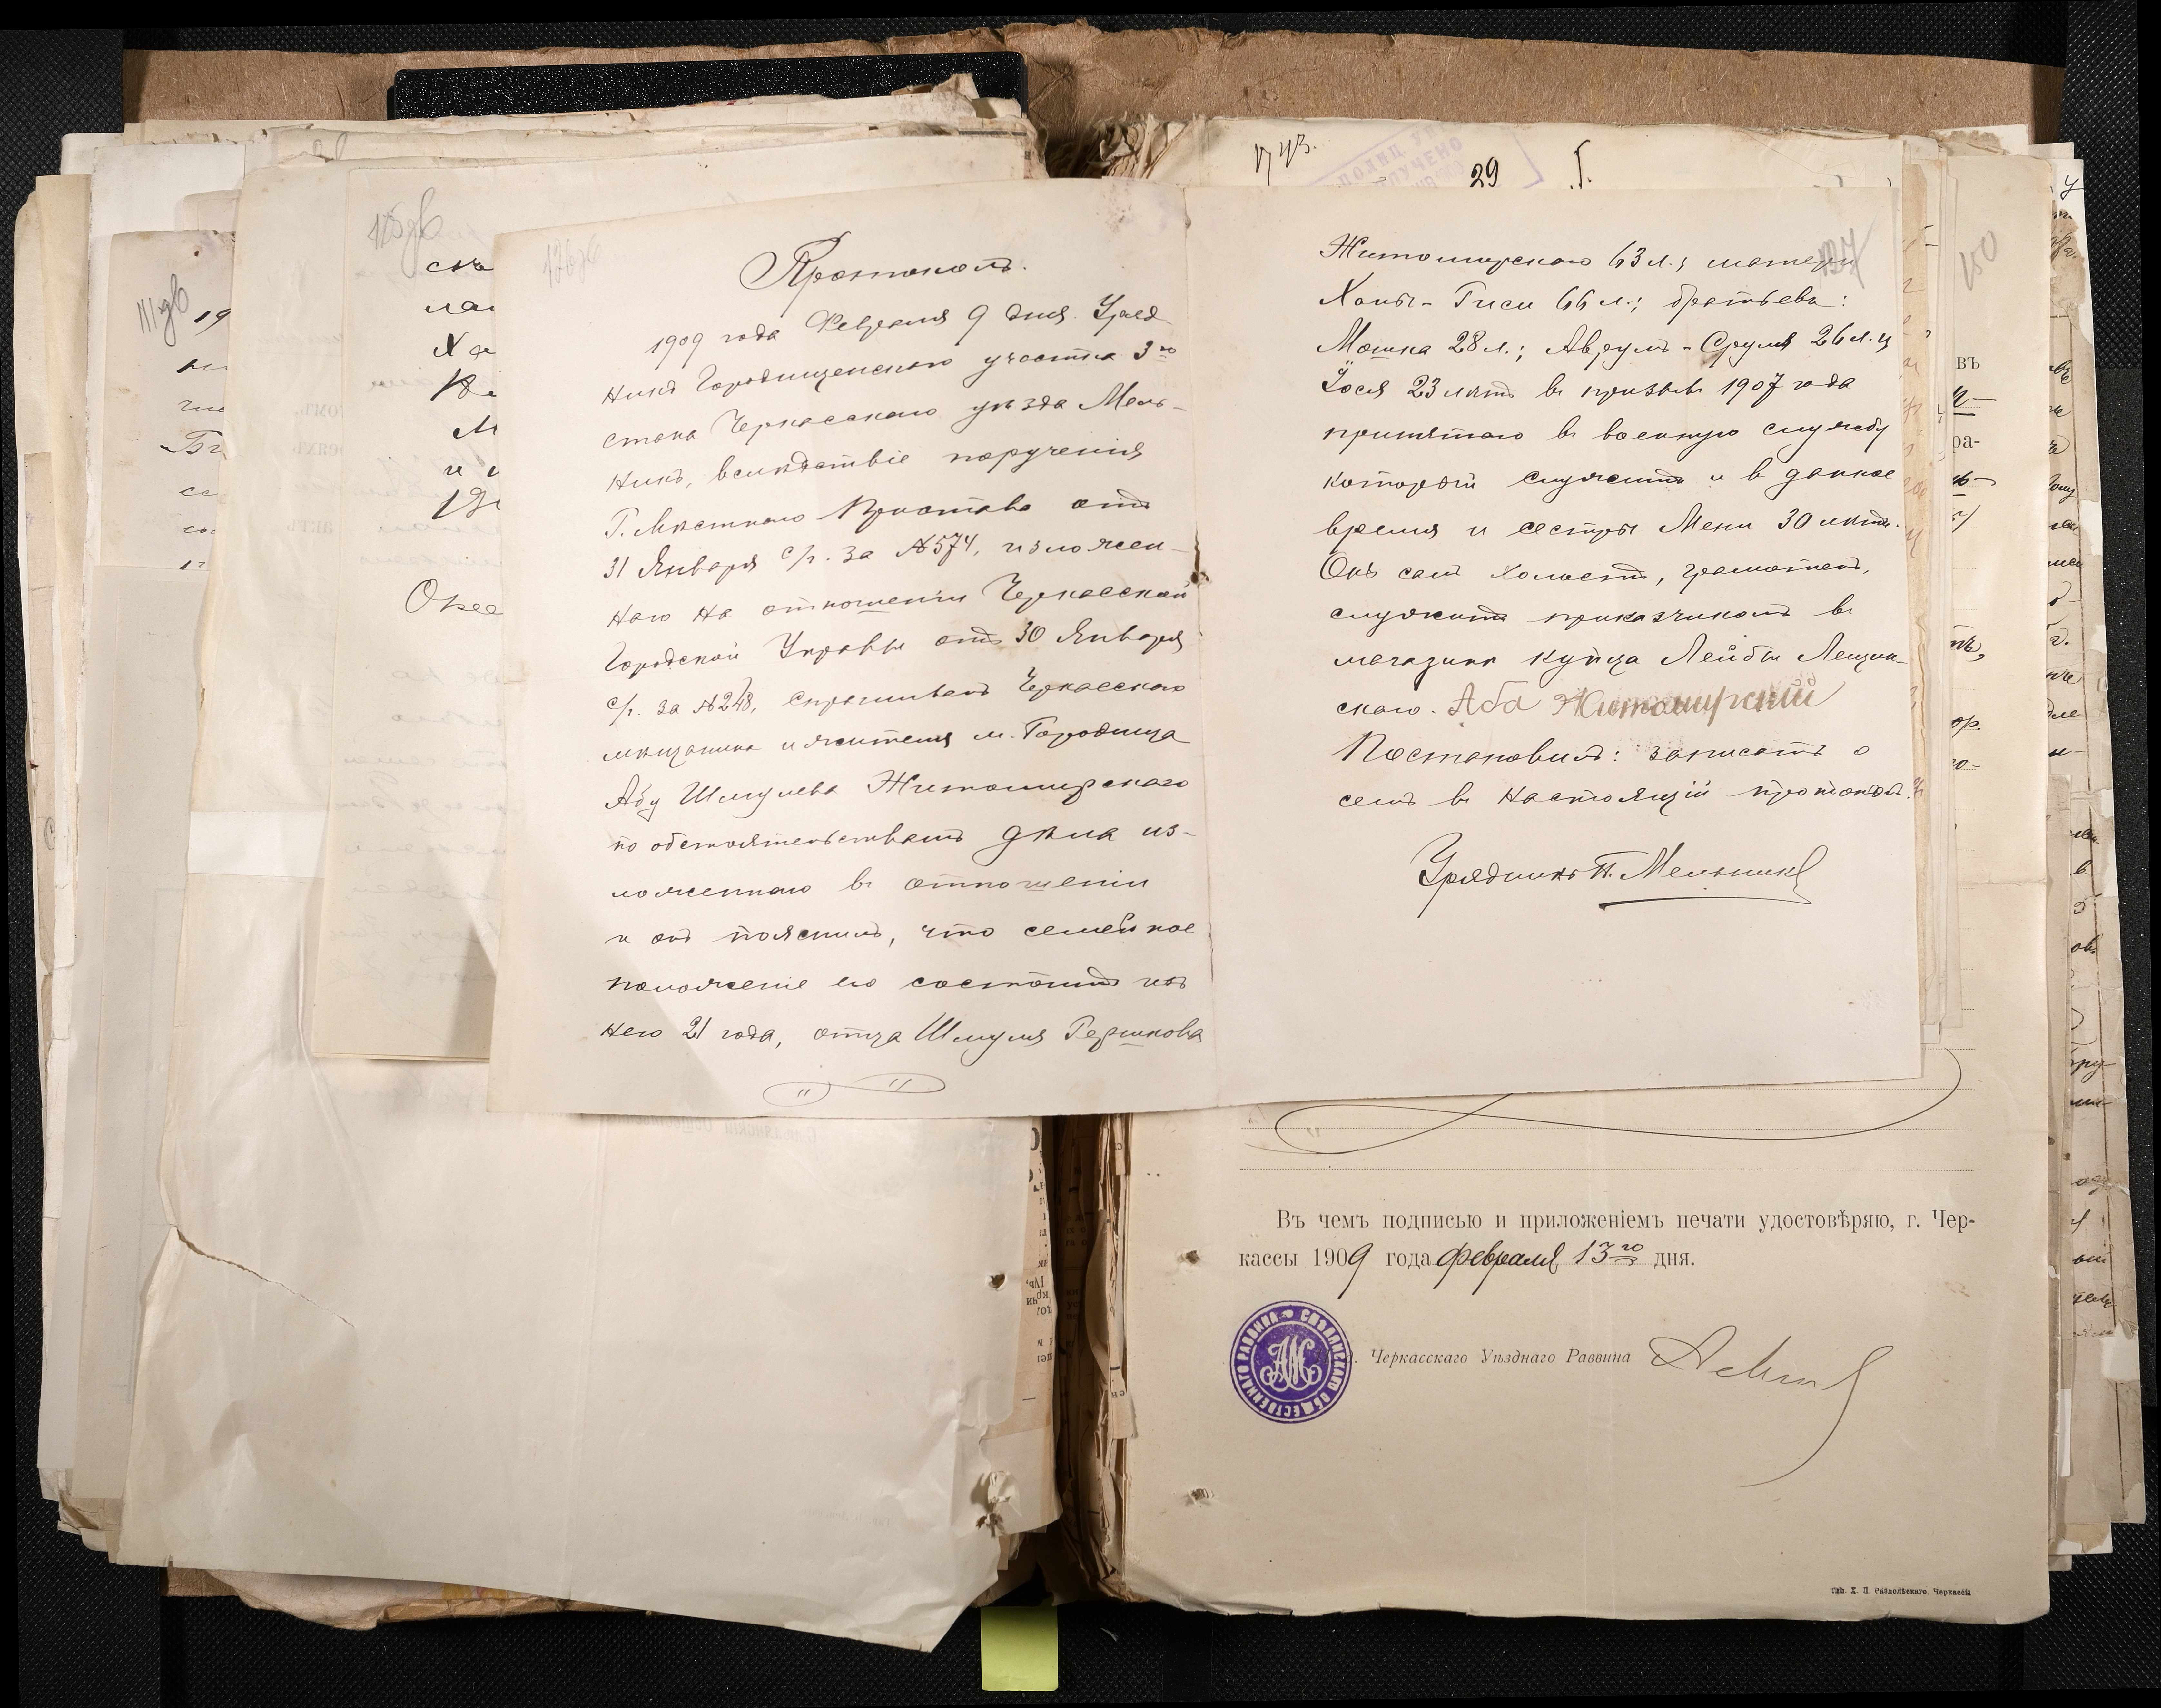 Протоколъ.
1909 года Февраля 9 дня. Уряд
никъ Городищенскаго участка 3го
стана Черкасскаго уѣзда Мель-
никъ, вслѣдствіе порученія
Г. Мѣстнаго Пристава отъ
31 Января с/г. за №574, изложен-
наго на отношеніи Черкасской
Городской Управы отъ 30 Января
с/г. за №248, спрашивалъ Черкасскаго
мѣщанина и жителя м. Городища
Абу Шмулева Житомирскаго
по обстоятельствамъ дѣла из-
ложеннаго въ отношеніи
и онъ пояснилъ, что семейное
положеніе его состоитъ изъ
него 21 года, отца Шмуля Гершкова
Житомирскаго 63 л.; матери
Ханы-Гиси 66 л.; братьевъ:
Мошка 28 л.; Аврумъ-Сруля 26 л. и
Іося 23 лѣтъ въ призывъ 1907 года
принятаго въ военную службу
который служитъ и въ данное
время и сестры Мени 30 лѣтъ.
Онъ самъ холостъ, грамотенъ,
служитъ приказчикомъ въ
магазинѣ купца Лейбы Лещин-
скаго. Аба Житомирскій
Постановилъ: записать о
семъ въ настоящій протоколъ.
Урядникъ П. Мельникъ
137
150
29
125 об
съ
Ха
М
111 об 19
Въ чемъ подписью и приложеніемъ печати удостовѣряю, г. Чер-
кассы 1909 года февраля 13го дня.
Черкасскаго Уѣзднаго Раввина
СМѢЛЯНСКАГО ОБЩЕСТВЕННАГО РАВВИНА
Тип. Х. Л. Раздольскаго. Черкассы